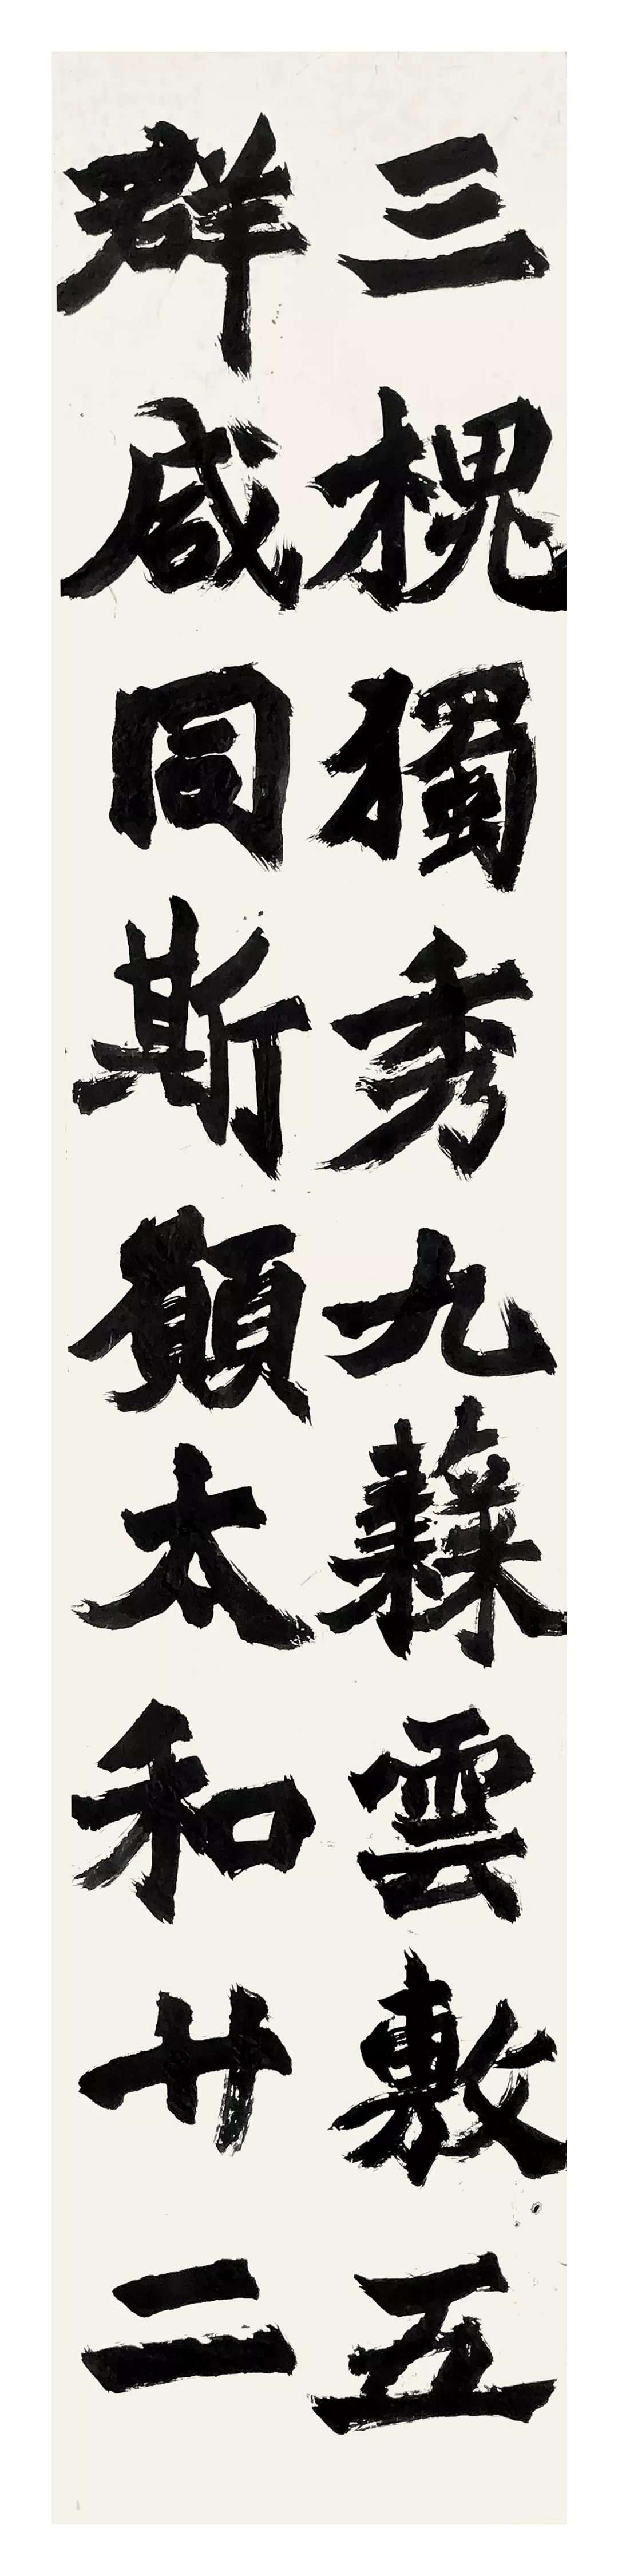 三槐獨秀九蕀雲敷五
群咸同斯願太和廿二